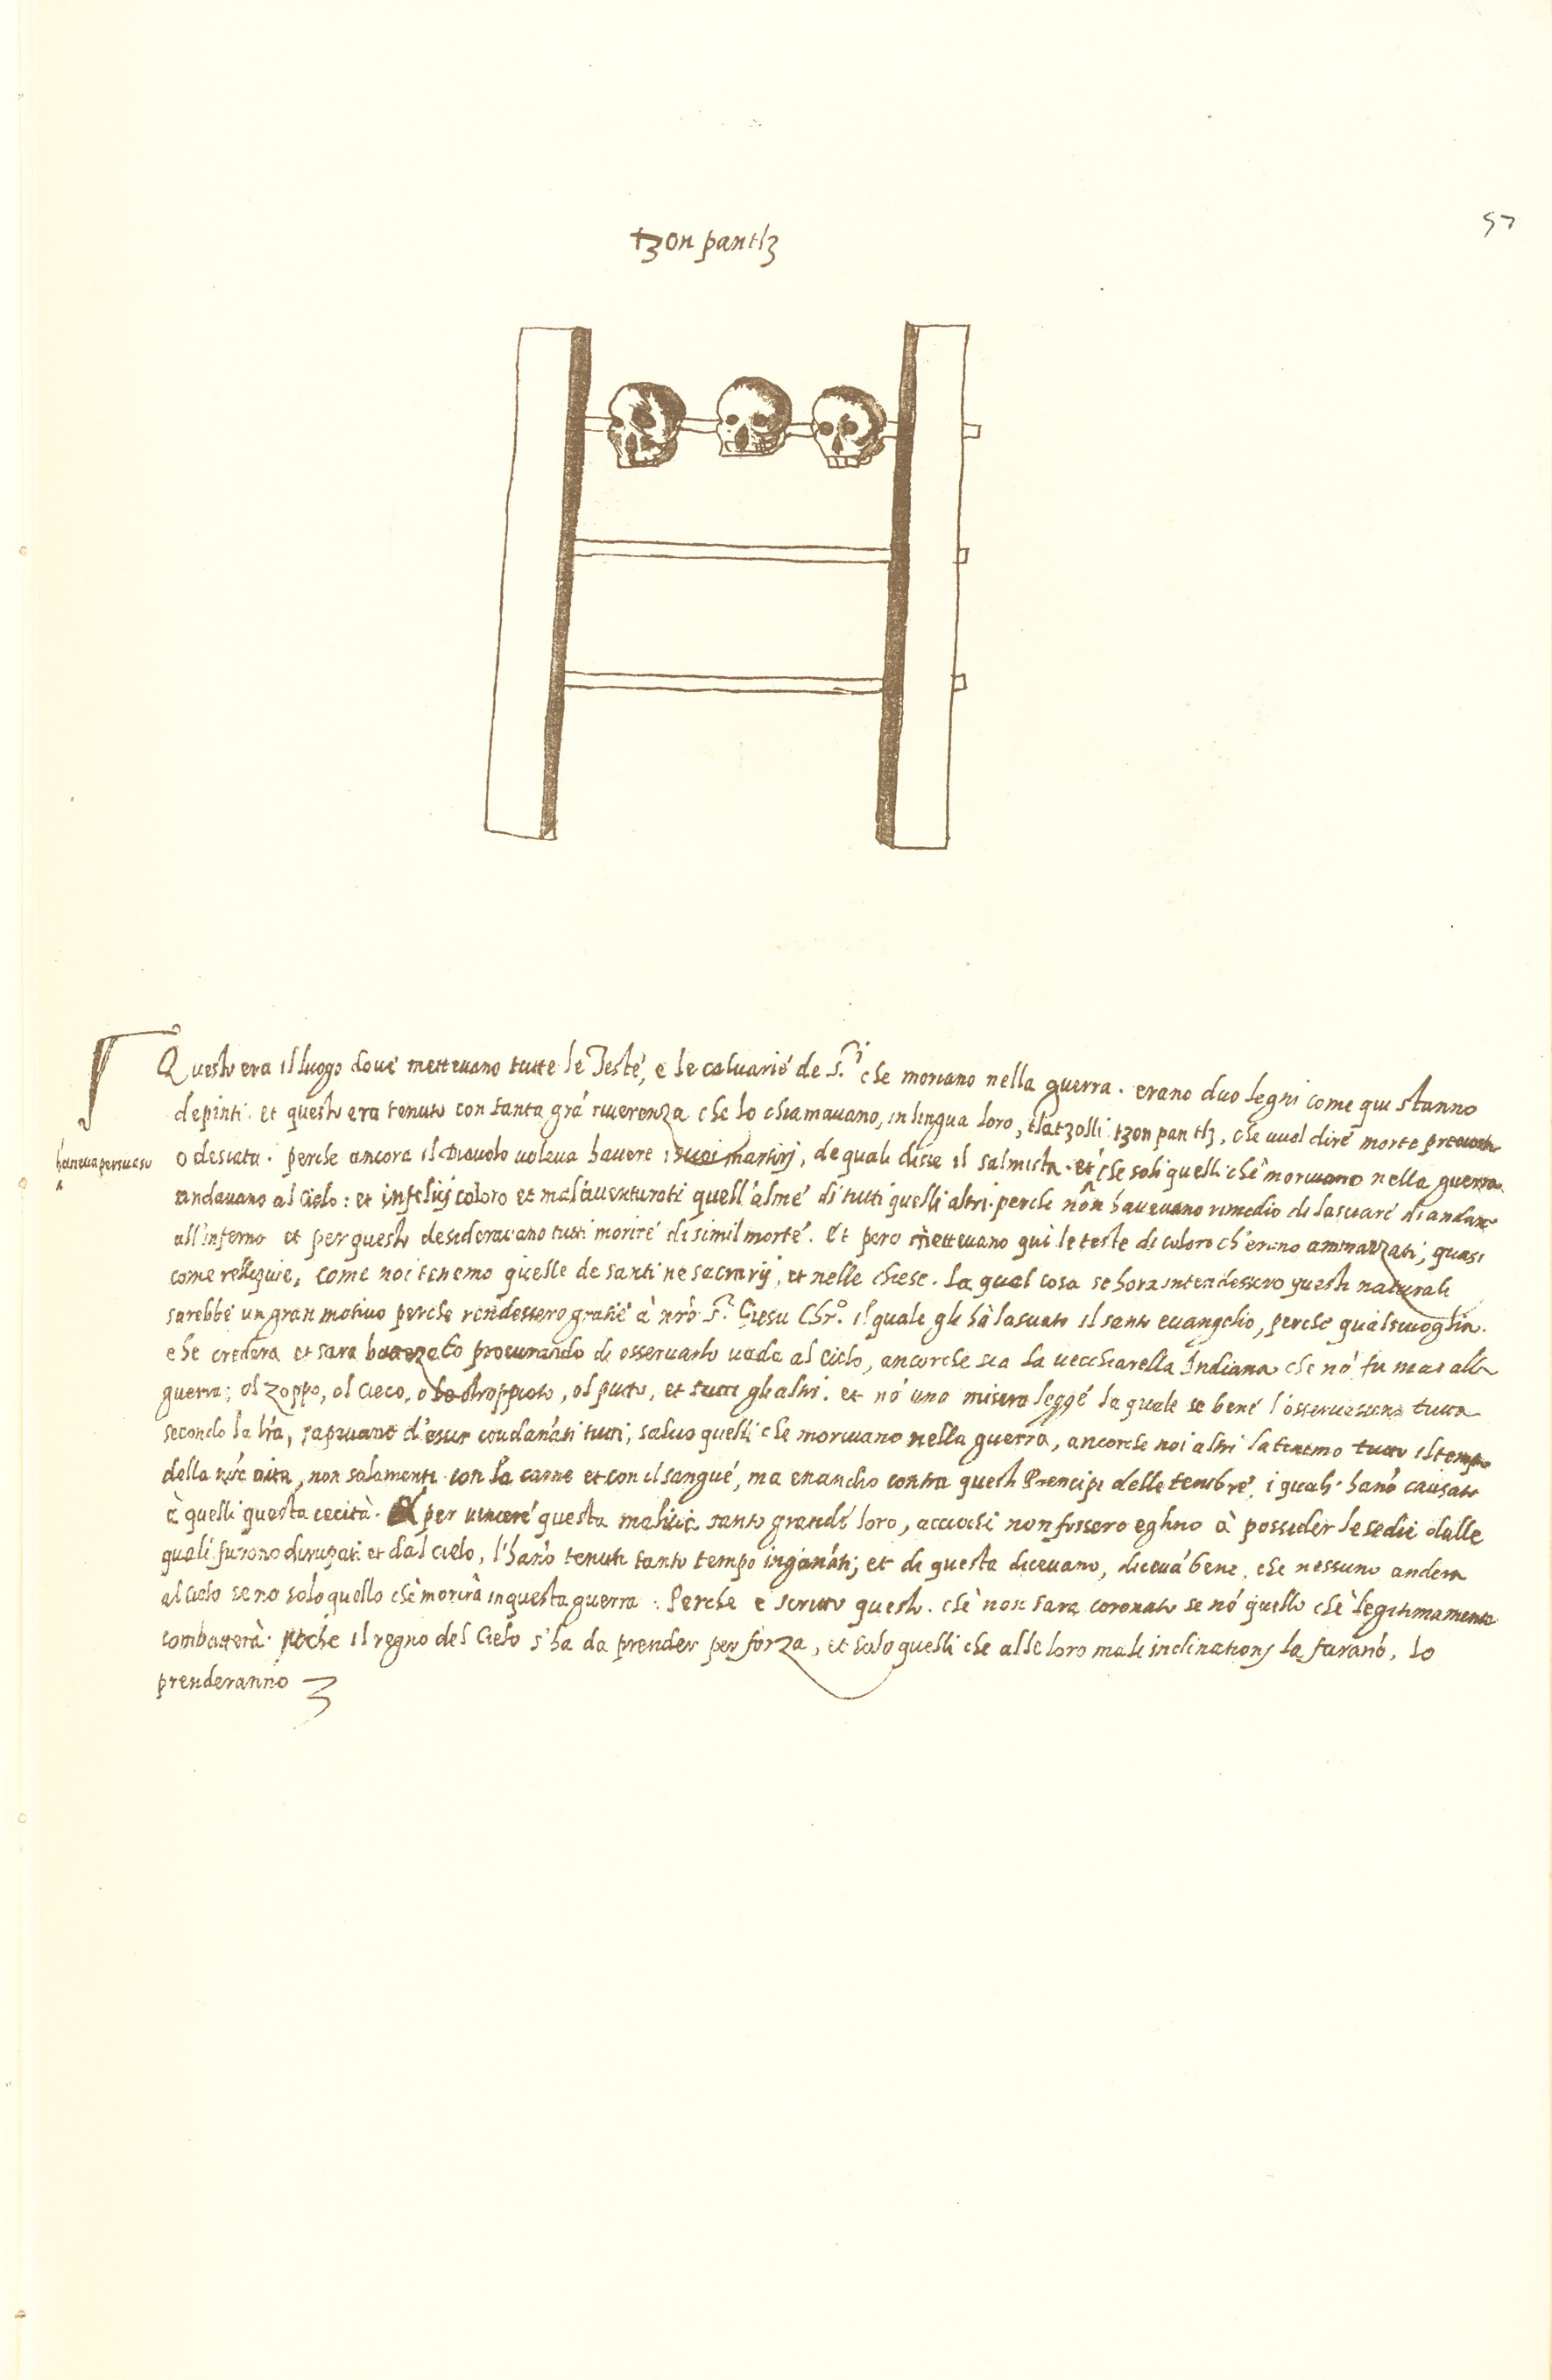 57
tzon pantlz
Questo era il luogo dove mettevano tutte le Teste, e le calvarie de S.ri che moriano nella guerra. erano duo legni come qui stanno
depinti. et questo era tenuto con tanta grã riverenza che lo chiamavano, in lingua loro, tlatzolli tzon pantlz, che vuol dire morte
o desiata. perche ancora il Diavolo voleva havere i suoi martirj, de quali disse il salmista. et che soli quelli che morivano nella guerra
haveva persuaso
andavano al Cielo: et infelicj coloro et mal'aventurati quell'alme di tutti quelli altri. perche nõn havevano rimedio di lasciare di andare
all'inferno et per questo desideravano tutti morire di simil morte. Et pero mettevano qui le teste di coloro ch'erano ammazzati, quasi
come relliquie, come noi tenemo quelle de santi ne sacrarij, et nelle chiese. La qual cosa se hora intendessero questi naturali
sarebbe un gran motivo perche rendessero gratie à nr̃o S.r Giesu Chr.o il quale gli hà lasciato il santo evangelio, perche qualsivoglia
che credera et sara battezato procurando di osservarlo vada al cielo, ancorche sia la vecchiarella Indiana che nõ fu mai alla
guerra; ol zoppo, ol cieco, o lo stroppiato, ol putto, et tutti gli altri. et nõ una misera legge la quale se bene l'osservassino tutta
secondo la lr̃a, sapevano d'esser condãnati tutti, salvo quelli che morivano nella guerra, ancorche noi altri la tenemo tutto il tempo
della nr̃a vita, non solamente con la carne et con il sangue, ma enancho contra questi Prencipi delle tenebre, i quali hãno causato
à quelli questa cecità. per vincere questa malitia tanto grande loro, accioche non fossero eglino à posseder le sedie dalle
quali furono dirupati et dal cielo, l'hãno tenuti tanto tempo ingãnati; et di questa dicevano, dicevã bene, che nessuno andera
al cielo se no solo quello che morirà in questa guerra. Perche e scritto questo. che non sara coronato se nõ quello che legitimamente
combatterà. pche il regno del Cielo s'ha da prender per forza, et solo quelli che alle loro male inclinationj la farãno, lo
prenderanno